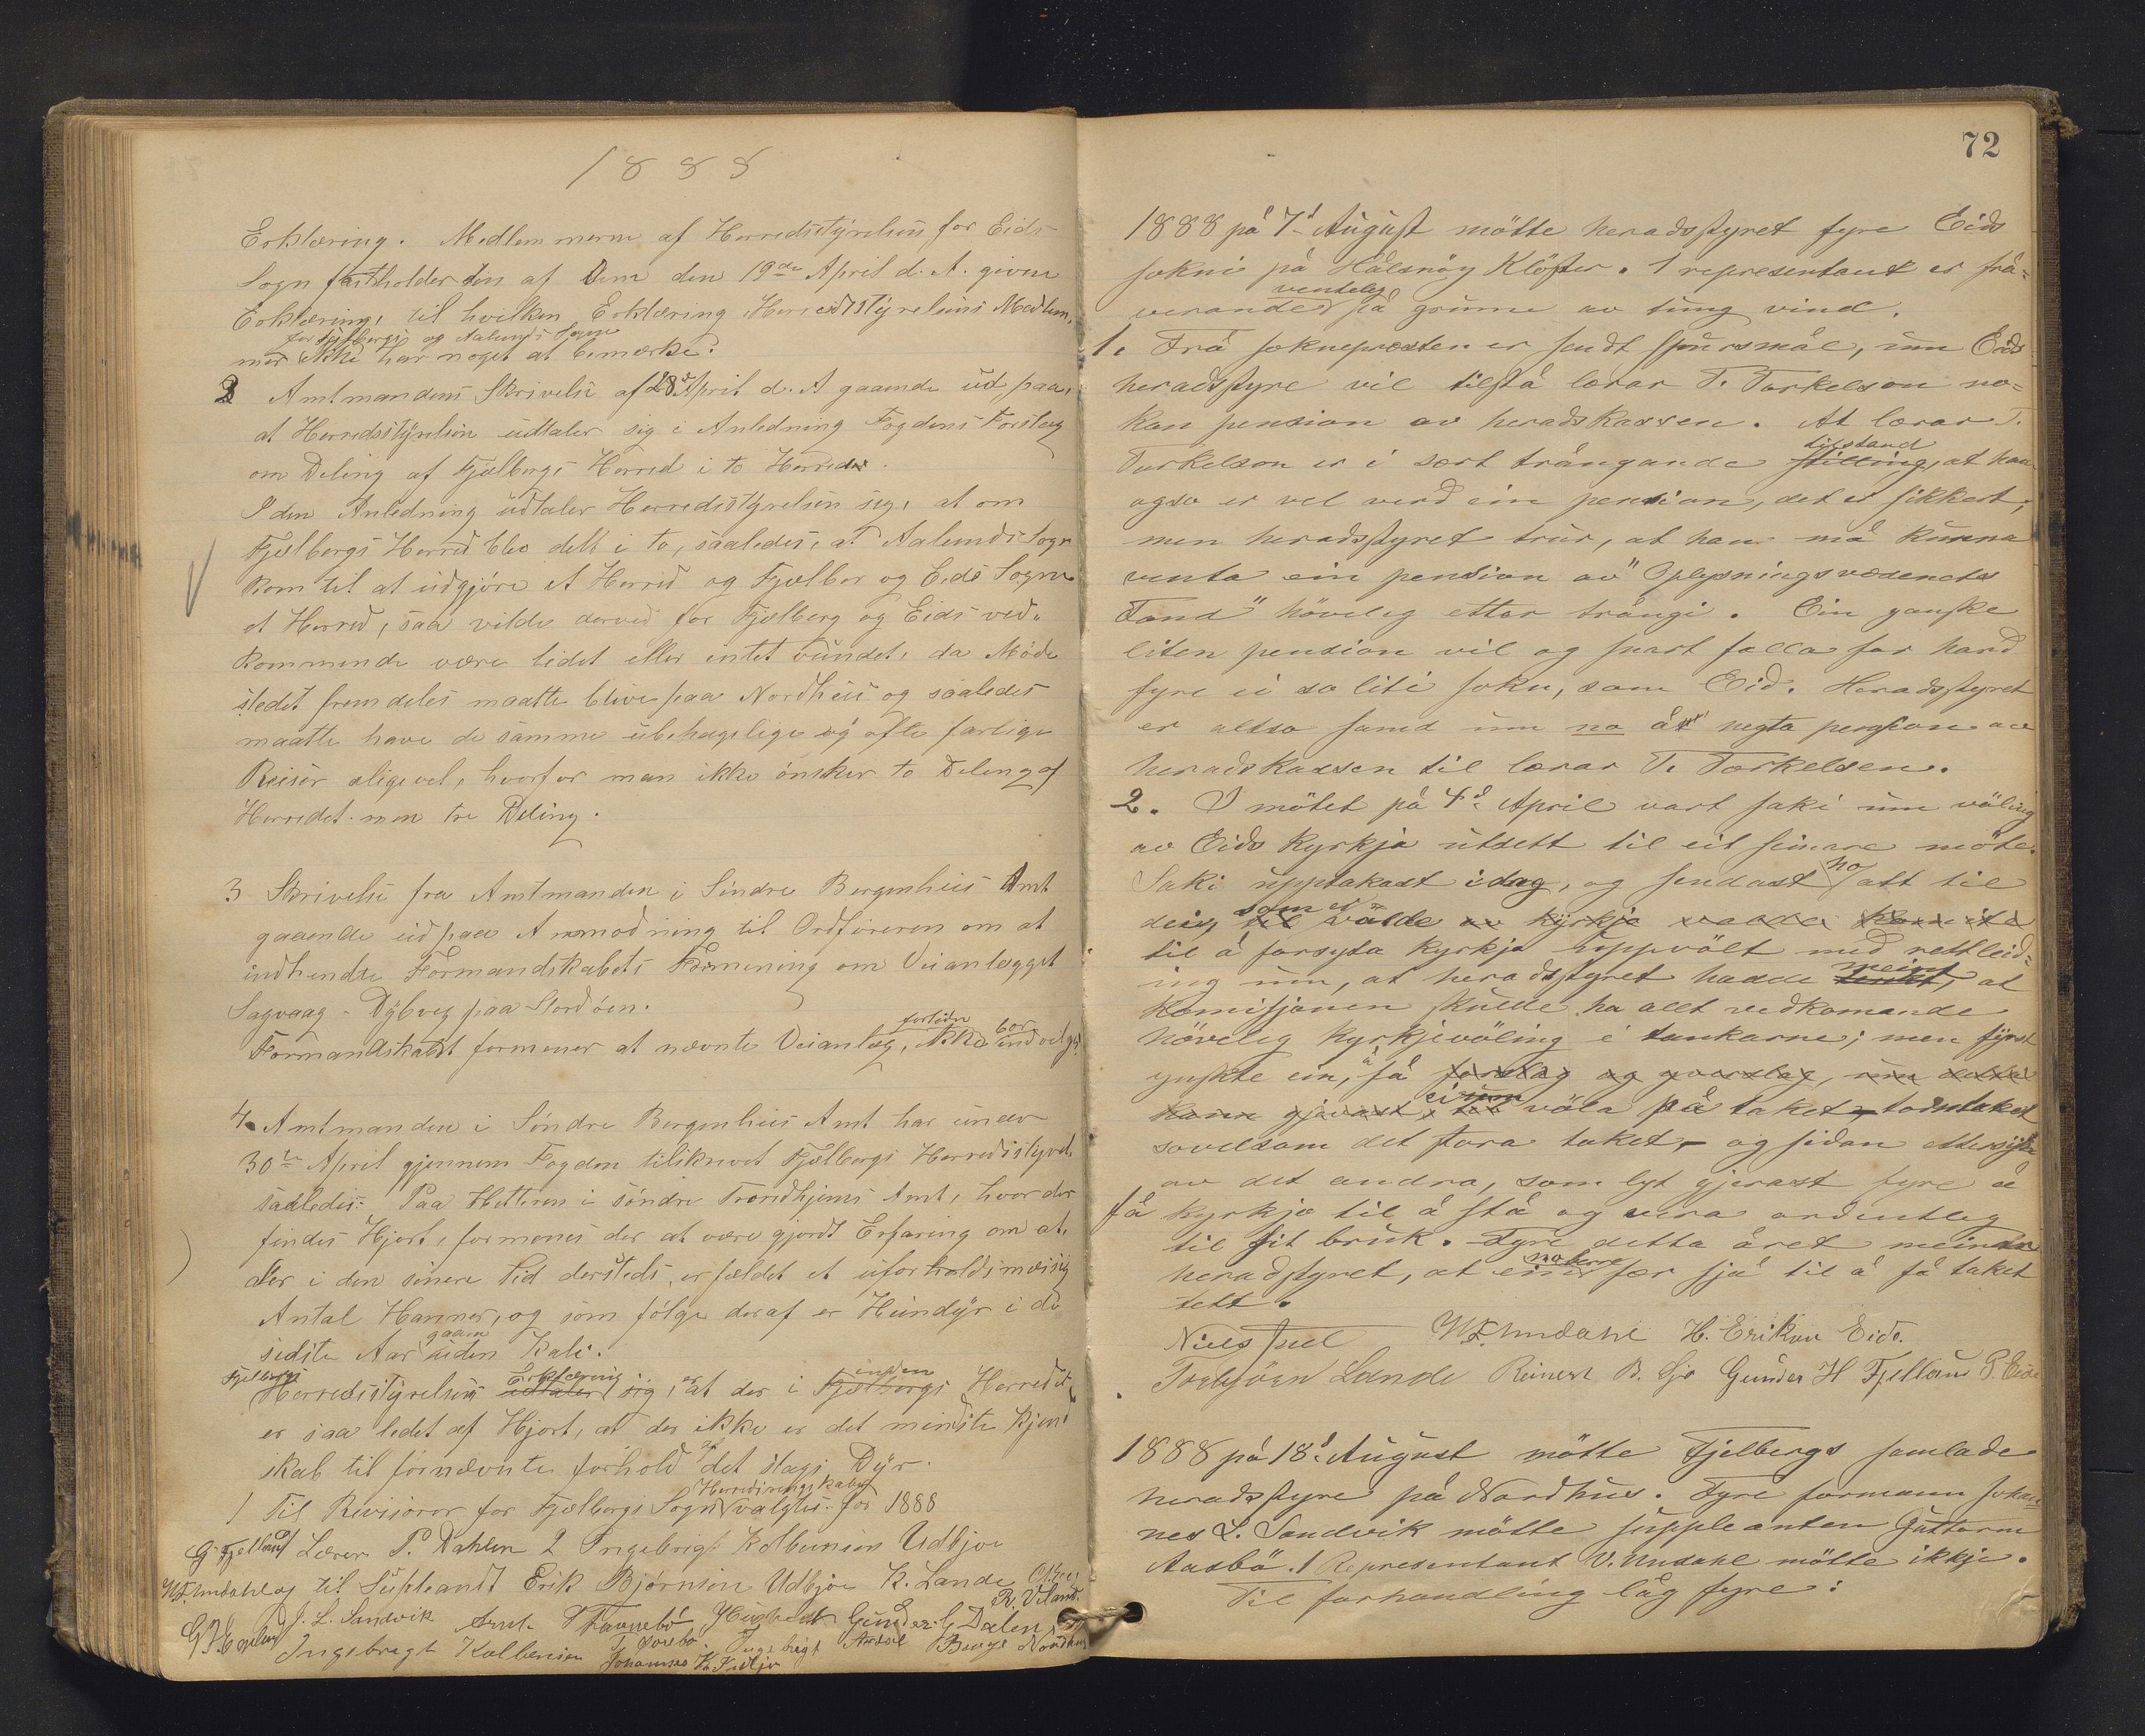 1888
Erklæring. Medlemmerne af Herredsstyrelsen for Eids
Sogn fastholder den af Dem den 19de April d. A. givne
Erklæring, til hvilken Erklæring Herredsstyrelsens Medlem,
for Fjelbergs og Aalunds Sogne
mer ikke har noget at bemærke.
2 Amtmandens Skrivelse af 28de April d. A gaaende ud paa,
at Herredsstyrelsen udtaler sig i Anledning Fogdens Forslag
om Deling af Fjelbergs Herred i to Herreder.
I den Anledning udtaler Herredsstyrelsen sig, at om
Fjelbergs Herred blev delt i to, saaledes, at Aalunds Sogn
kom til at udgjøre et Herred og Fjelber og Eids Sogne
et Herred, saa vilde derved for Fjelberg og Eids ved„
kommende være lidet eller intet vundet, da Møde
stedet fremdeles maatte blive paa Nordhuus og saaledes
maatte have de samme ubehagelige og ofte farlige
Reiser aligevel, hvorfor man ikke ønsker to Deling af
Herredet men tre Deling.
3 Skrivelse fra Amtmanden i Søndre Bergenhuus Amt
gaaende ud paa Anmodning til Ordføreren om at
indhendte Formandskabets Formening om Veianlægget
Sagvaag - Dybvig paa Stordøen.
forliden bør
Formandskabet formener at nævnte Veianlæg, ikke indvilges
4. Amtmanden i Søndre Bergenhuus Amt har under
30te April gjennem Fogden tilskrevet Fjelbergs Herredsstyrelse
saaledes: Paa Hitteren i søndre Trondhjems Amt, hvor der
findes Hjort, formenes der at være gjordt Erfaring om at,
der i den senere Tid dersteds, er fældet et uforholdsmæsig
Antal Hanner, og som følge deraf er Hundyr i de
gaaen
sidste Aar uden Kalv.
Fjelbergs Erklæring inden
Herredsstyrelsens udtaler sig, er at der i Fjelbergs Herredet,
er saa lidet af Hjort, at der ikke er det mindste kjend
skab til førnævnte forhold af det slags Dyr.
Herredsregnskaber
1 Til Revisorer for Fjelbergs Sogn valgtes for 1888
G Fjelland Lærer P. Dahlen 2 Ingebrigt Kolbensen Udbjoe
W. Undahl og til Supleandt Erik Bjørnsen Udbjoe K. Lande
R. Viland
J. L. Sandvik Gunder G Dalen
Ingebregt Kolbensen Ingebrigt Bengt Nordhus
Johannes K. Fuljo
72
1888 på 7d August mötte heradsstyret fyre Eids
sokni på Hålsnöy Klöster. 1 representant er frå=
venteleg
verande på grunn av tung vind.
1. Frå soknepresten er sendt spursmål, um Eids
heradsstyre vil tilstå lærar T. Torkelson no=
kon pension av heradskassen. At lærar T.
tilstand
Torkelson er i sært trångande stilling, at han
ogso er vel verd ein pension, det er sikkert,
men heradsstyret trur, at han må kunna
venta ein pension av "Oplysningsvæsenets
Fond" höveleg etter trångi. Ein ganske
liten pension vil og snart falla for hard
fyre ei so liti sokn, som Eid. Heradsstyret
er altso samd um no å negta pension av
heradskassen til lærar T. Torkelsen.
2. I mötet på 4d April vart saki um völing
av Eids Kyrkja utsett til eit seinare möte.
no
Saki upptakast idag, og sendast att til
som er
deig til välde av kyrkja valde komite
til å forsyta kyrkja uppvölt med rettleid=
meint
ing um, at heradsstyret hadde tenkt, at
Komissjonen skulle ha allt vedkomande
höveleg kyrkjevöling i tankarne; men fyrst
ynskte ein, å få forslag og yverslag, um detta
ei um
kann gjerast, til völa på taket - torntaket
sovelsom det stora taket, - og sidan ettersyn
av det andra, som lyt gjerast fyre å
få kyrkja til å stå og vera ordentleg
til sit bruk. Fyre detta året meinar
nokre
heradstyret, at ein fær sjå til å få taket
tett.
Niels Juel W. Undahl H. Eriksen Eide.
Torbjörn Lande Reinert B. Sjo Gunder H Fjelland P. Eide
1888 på 18d August mötte Fjelbergs samlade
heradsstyre på Nordhus. Fyre formann Johan
nes L. Sandvik mötte suppleanten Guttorm
Aasbö. 1 Representant V. Undahl mötte ikkje.
Til forhandling låg fyre: